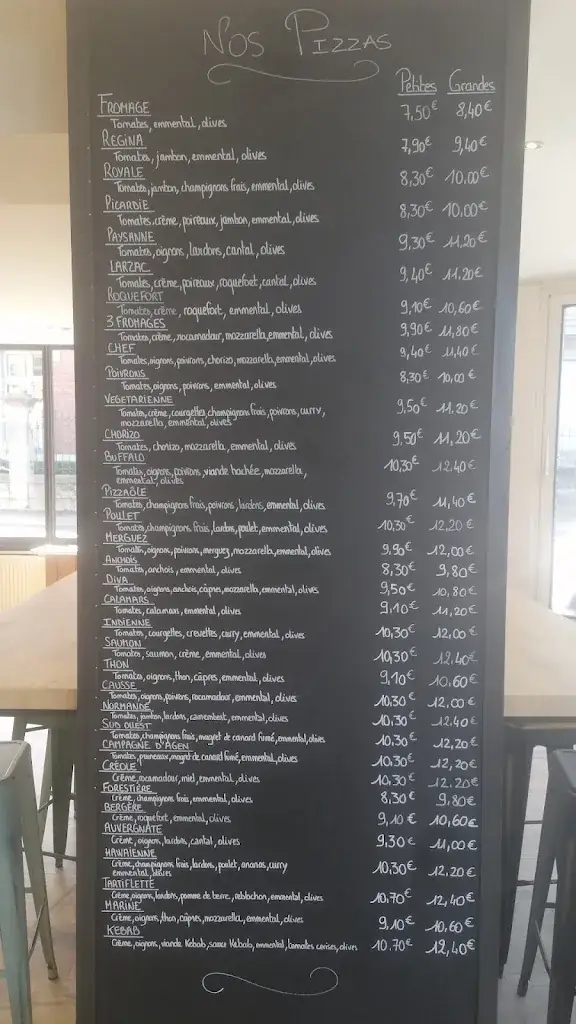 Nos Pizzas
Petites Grandes
FROMAGE 7,50€ 8,40€
Tomates, emmental, olives
REGINA 7,90€ 9,40€
Tomates, jambon, emmental, olives
ROYALE 8,30€ 10,00€
Tomates, jambon, champignons frais, emmental, olives
PICARDIE 8,30€ 10,00€
Tomates, crème, poireaux, jambon, emmental, olives
PAYSANNE 9,30€ 11,20€
Tomates, oignons, lardons, cantal, olives
LARZAC 9,40€ 11,20€
Tomates, crème, poireaux, roquefort, cantal, olives
ROQUEFORT 9,10€ 10,60€
Tomates, crème, roquefort, emmental, olives
3 FROMAGES 9,90€ 11,80€
Tomates, crème, rocamadour, mozzarella, emmental, olives
CHEF 9,40€ 11,40€
Tomates, oignons, poivrons, chorizo, mozzarella, emmental, olives
POIVRONS 8,30€ 10,00€
Tomates, oignons, poivrons, emmental, olives
VEGETARIENNE 9,50€ 11,20€
Tomates, crème, courgettes, champignons frais, poivrons, curry,
mozzarella, emmental, olives
CHORIZO 9,50€ 11,20€
Tomates, chorizo, mozzarella, emmental, olives
BUFFALO 10,30€ 12,40€
Tomates, oignons, poivrons, viande hachée, mozzarella,
emmental, olives
PIZZAÏOLE 9,70€ 11,40€
Tomates, champignons frais, poivrons, lardons, emmental, olives
POULET 10,30€ 12,20€
Tomates, champignons frais, lardons, poulet, emmental, olives
MERGUEZ 9,90€ 12,00€
Tomates, oignons, poivrons, merguez, mozzarella, emmental, olives
ANCHOIS 8,30€ 9,80€
Tomates, anchois, emmental, olives
DIVA 9,50€ 10,80€
Tomates, oignons, anchois, câpres, mozzarella, emmental, olives
CALAMARS 9,10€ 11,20€
Tomates, calamars, emmental, olives
INDIENNE 10,30€ 12,00€
Tomates, courgettes, crevettes, curry, emmental, olives
SAUMON 10,30€ 12,40€
Tomates, saumon, crème, emmental, olives
THON 9,10€ 10,60€
Tomates, oignons, thon, câpres, emmental, olives
CAUSSE 10,30€ 12,00€
Tomates, oignons, poivrons, rocamadour, emmental, olives
NORMANDE 10,30€ 12,40€
Tomates, jambon, lardons, camembert, emmental, olives
SUD OUEST 10,30€ 12,20€
Tomates, champignons frais, magret de canard fumé, emmental, olives
CAMPAGNE D'AGEN 10,30€ 12,20€
Tomates, pruneaux, magret de canard fumé, emmental, olives
CRÉOLE 10,30€ 12.20€
Crème, rocamadour, miel, emmental, olives
FORESTIÈRE 8,30€ 9,80€
Crème, champignons frais, emmental, olives
BERGÈRE 9,10€ 10,60€
Crème, roquefort, emmental, olives
AUVERGNATE 9,30€ 11,00€
Crème, oignons, lardons, cantal, olives
HAWAÏENNE 10,30€ 12,20€
Crème, champignons frais, lardons, poulet, ananas, curry
emmental, olives
TARTIFLETTE 10,70€ 12,40€
Crème, oignons, lardons, pomme de terre, reblochon, emmental, olives
MARINE 9,10€ 10,60€
Crème, oignons, thon, câpres, mozzarella, emmental, olives
KEBAB 10.70€ 12,40€
Crème, oignons, viande Kebab, sauce Kebab, emmental, tomates cerises, olives